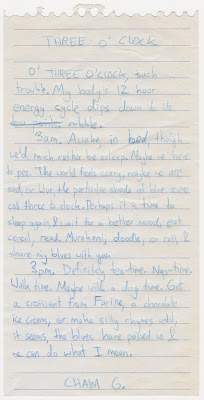 THREE O' CLOCK
O' THREE O'CLOCK, such
trouble. My body's 12 hour
energy cycle dips down to its
rubble.
3am. Awake in bed, though
we'd much rather be asleep. Maybe we have
to pee. The world feels scary, maybe we are
sad, or blue, the particular shade of blue we
call three o' clock. Perhaps it is time to
sleep again, & wait for a better mood, eat
cereal, read Murakami, doodle, or call, &
share my blues with you.
3pm. Definitely tea-time. Nap-time.
Walk time. Maybe walk a dog time. Get
a croissant from Farine, a chocolate
ice cream, or make silly rhymes until,
it seems, the blues have passed us &
we can do what I mean.
CHAIM G.